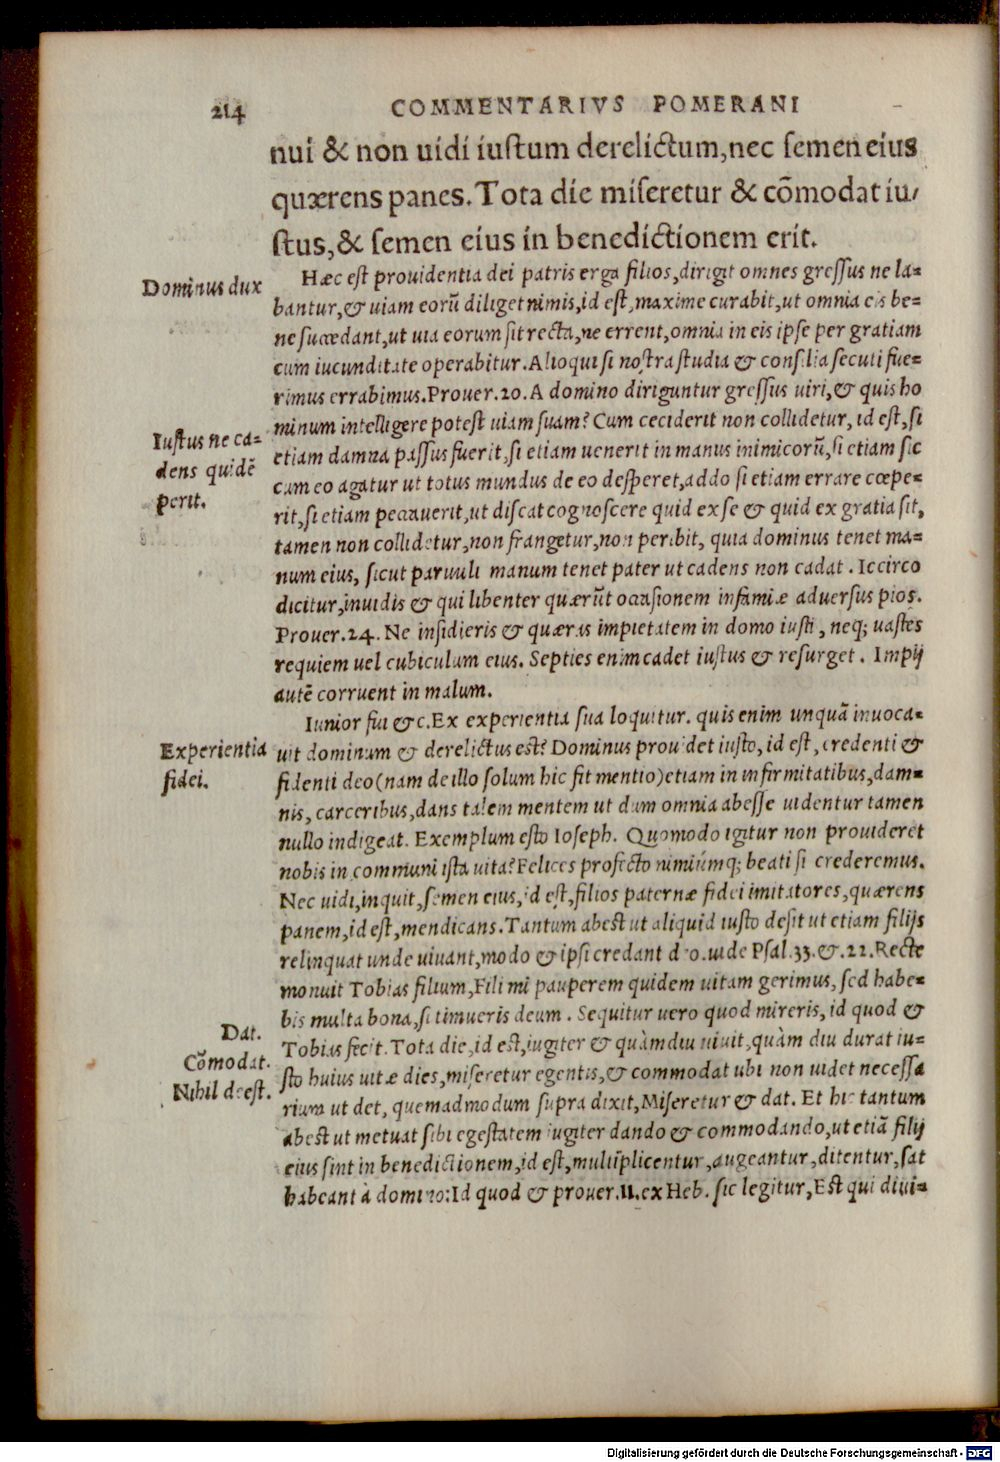 214 COMMENTARIVS POMERANI
nui & non uidi iustum derelictum, nec semen eius
quærens panes. Tota die miseretur & cōmodat iu/
stus, & semen eius in benedictionem erit.
Dominus dux
Hæc est prouidentia dei patris erga filios, dirigit omnes gressus ne la-
bantur, & uiam eorū diliget nimis, id est, maxime curabit, ut omnia eis be-
ne succedant, ut uia eorum sit recta, ne errent, omnia in eis ipse per gratiam
cum iucunditate operabitur. Alioqui si nostra studia & consilia secuti fue-
rimus errabimus. Prouer. 20. A domino diriguntur gressus uiri, & quis ho
minum intelligere potest uiam suam? Cum ceciderit non collidetur, id est, si
Iustus ne ca-
dens quidē
perit.
etiam damna passus fuerit, si etiam uenerit in manus inimicorū, si etiam sic
cum eo agatur ut totus mundus de eo desperet, addo si etiam errare cœpe-
rit, si etiam peccauerit, ut discat cognoscere quid ex se & quid ex gratia sit,
tamen non collidetur, non frangetur, non peribit, quia dominus tenet ma-
num eius, sicut paruuli manum tenet pater ut cadens non cadat. Iccirco
dicitur, inuidis & qui libenter quærūt occasionem infamiæ aduersus pios.
Prouer. 24. Ne insidieris & quæras impietatem in domo iusti, neq; uastes
requiem uel cubiculum eius. Septies enim cadet iustus & resurget. Impij
autē corruent in malum.
Iunior fui &c. Ex experientia sua loquitur. quis enim unquā inuoca-
Experientia
fidei.
uit dominum & derelictus est? Dominus prouidet iusto, id est, credenti &
fidenti deo (nam de illo solum hic fit mentio) etiam in infirmitatibus, dam-
nis, carceribus, dans talem mentem ut dum omnia abesse uidentur tamen
nullo indigeat. Exemplum esto Ioseph. Quomodo igitur non prouideret
nobis in communi ista uita? Felices profecto nimiúmq; beati si crederemus.
Nec uidi, inquit, semen eius, id est, filios paternæ fidei imitatores, quærens
panem, id est, mendicans. Tantum abest ut aliquid iusto desit ut etiam filijs
relinquat unde uiuant, modo & ipsi credant deo. uide Psal. 33. &. 22. Recte
monuit Tobias filium, Fili mi pauperem quidem uitam gerimus, sed habe-
bis multa bona, si timueris deum. Sequitur uero quod mireris, id quod &
Dat.
Cōmodat.
Nihil deest.
Tobias fecit. Tota die, id est, iugiter & quàmdiu uiuit, quàm diu durat iu-
sto huius uitæ dies, miseretur egentis, & commodat ubi non uidet necessa
rium ut det, quemadmodum supra dixit, Miseretur & dat. Et hic tantum
abest ut metuat sibi egestatem iugiter dando & commodando, ut etiā filij
eius sint in benedictionem, id est, multiplicentur, augeantur, ditentur, sat
habeant à domino: Id quod & prouer. 11. ex Heb. sic legitur, Est qui diui-
Digitalisierung gefördert durch die Deutsche Forschungsgemeinschaft - DFG